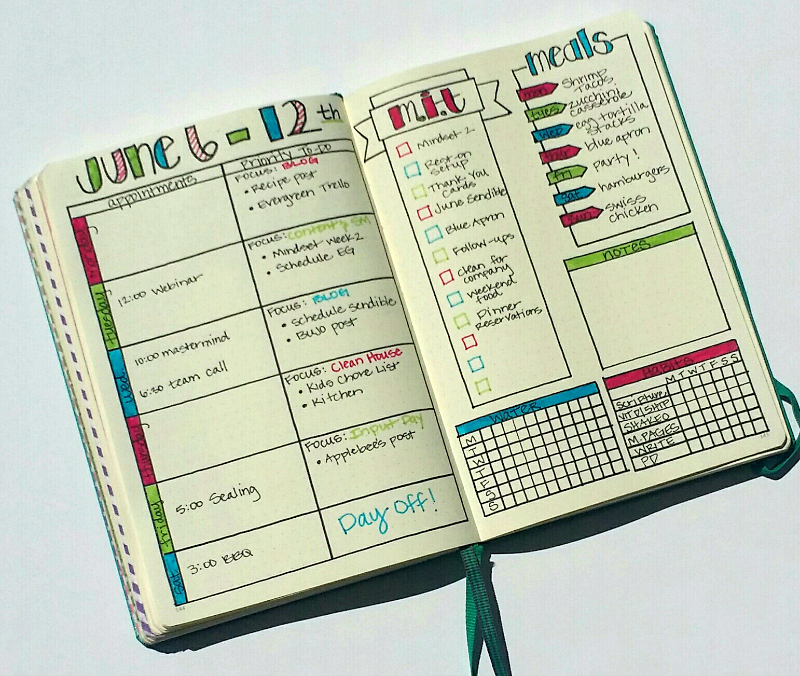 June 6 - 12th
appointments
Priority To-Do
monday
Focus: BLOG
• Recipe post
• Evergreen Trello
tuesday
12:00 Webinar
Focus: Content/SM
• Mindset week 2
• Schedule EG
wed
10:00 mastermind
6:30 team call
Focus: BLOG
• Schedule Sendible
• BUJO post
thursday
Focus: Clean House
• Kids Chore List
• Kitchen
friday
5:00 Sealing
Focus: Input Day
• Applebee's post
sat
3:00 BBQ
Day Off!
144
m.i.t
Mindset 2
Rest on
setup
Thank You
Cards
June Sendible
Blue Apron
Follow-ups
Clean for
company
Weekend
food
Dinner
Reservations
meals
mon
Shrimp
Tacos
tues
zucchini
casserole
wed
egg tortilla
stacks
thur
blue apron
fri
party!
sat
hamburgers
sun
swiss
chicken
notes
Water
M
T
W
T
F
S
S
Habits
M T W T F S S
Scripture
Worship
Shaked
M.Pages
Write
PD
145